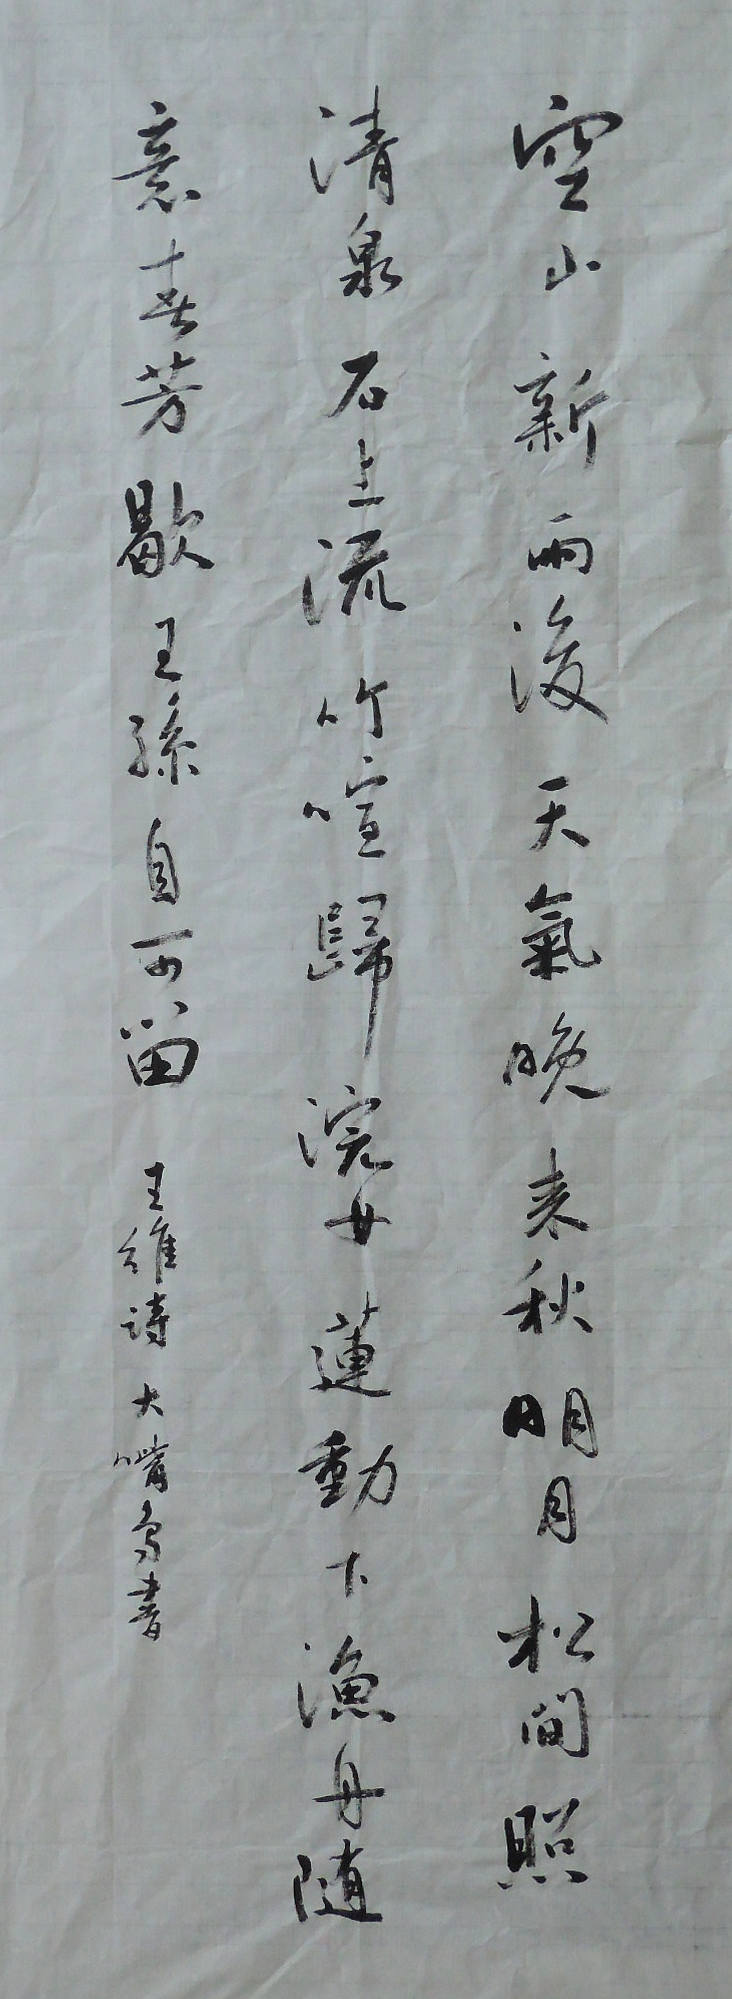 空山新雨後天氣晚来秋明月松间照
清泉石上流竹喧歸浣女蓮動下漁舟随
意春芳歇王孫自可留
王維詩大嘴鸟書